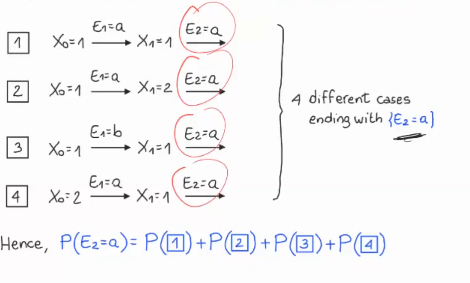 1 X₀=1 E₁=a X₁=1 E₂=a
2 X₀=1 E₁=a X₁=2 E₂=a
3 X₀=1 E₁=b X₁=1 E₂=a
4 X₀=2 E₁=a X₁=1 E₂=a
4 different cases
ending with {E₂=a}
Hence, P(E₂=a) = P(1)+P(2)+P(3)+P(4)